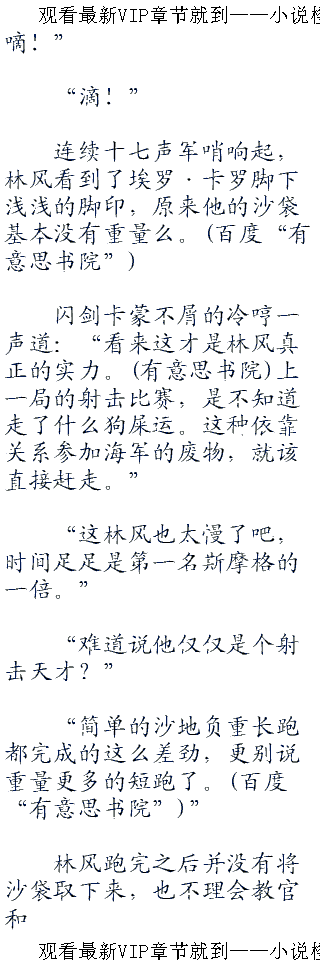 观看最新VIP章节就到——小说楼
嘀！”
“滴！”
连续十七声军哨响起，
林风看到了埃罗·卡罗脚下
浅浅的脚印，原来他的沙袋
基本没有重量么。(百度“有
意思书院”)
闪剑卡蒙不屑的冷哼一
声道：“看来这才是林风真
正的实力。(有意思书院)上
一局的射击比赛，是不知道
走了什么狗屎运。这种依靠
关系参加海军的废物，就该
直接赶走。”
“这林风也太慢了吧，
时间足足是第一名斯摩格的
一倍。”
“难道说他仅仅是个射
击天才？”
“简单的沙地负重长跑
都完成的这么差劲，更别说
重量更多的短跑了。(百度
“有意思书院”)”
林风跑完之后并没有将
沙袋取下来，也不理会教官
和
观看最新VIP章节就到——小说